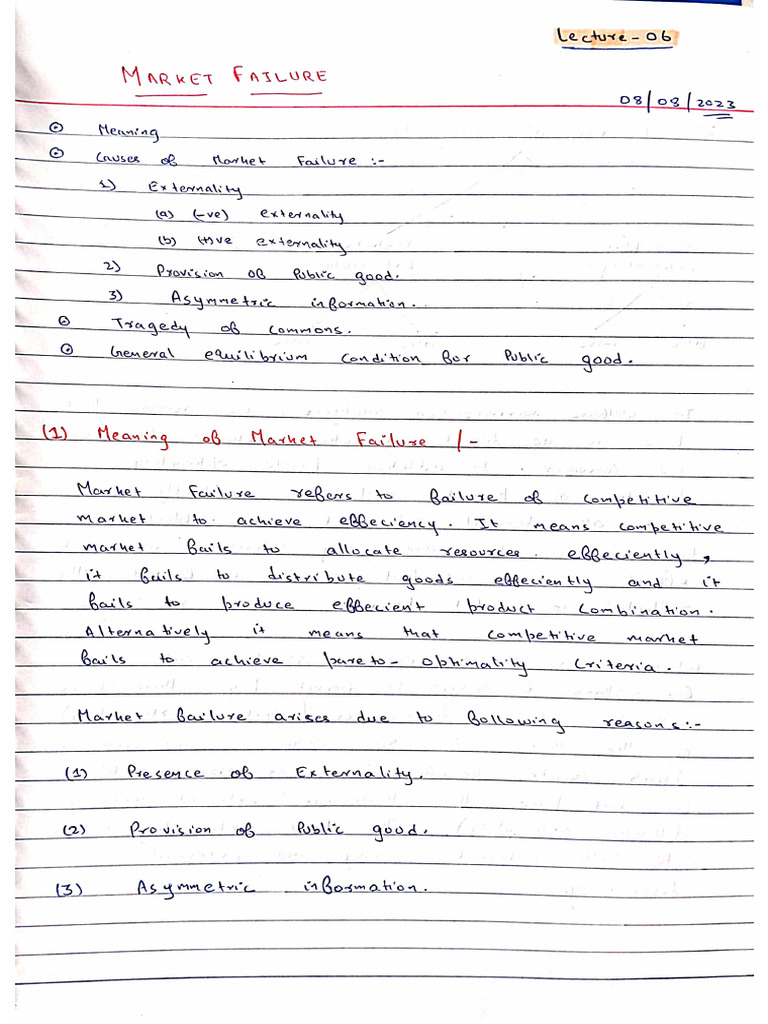 Lecture-06
MARKET FAILURE
08/08/2023
⊙ Meaning
⊙ Causes of Market Failure :-
1) Externality
(a) (-ve) externality
(b) (+)ve externality
2) Provision of Public good.
3) Asymmetric information.
⊙ Tragedy of commons.
⊙ General equilibrium condition for Public good.
(1) Meaning of Market Failure /-
Market Failure refers to failure of competitive
market to achieve effeciency. It means competitive
market fails to allocate resources effeciently,
it fails to distribute goods effeciently and it
fails to produce effecient product combination.
Alternatively it means that competitive market
fails to achieve pareto-optimality criteria.
Market failure arises due to following reasons:-
(1) Presence of Externality.
(2) Provision of Public good.
(3) Asymmetric information.